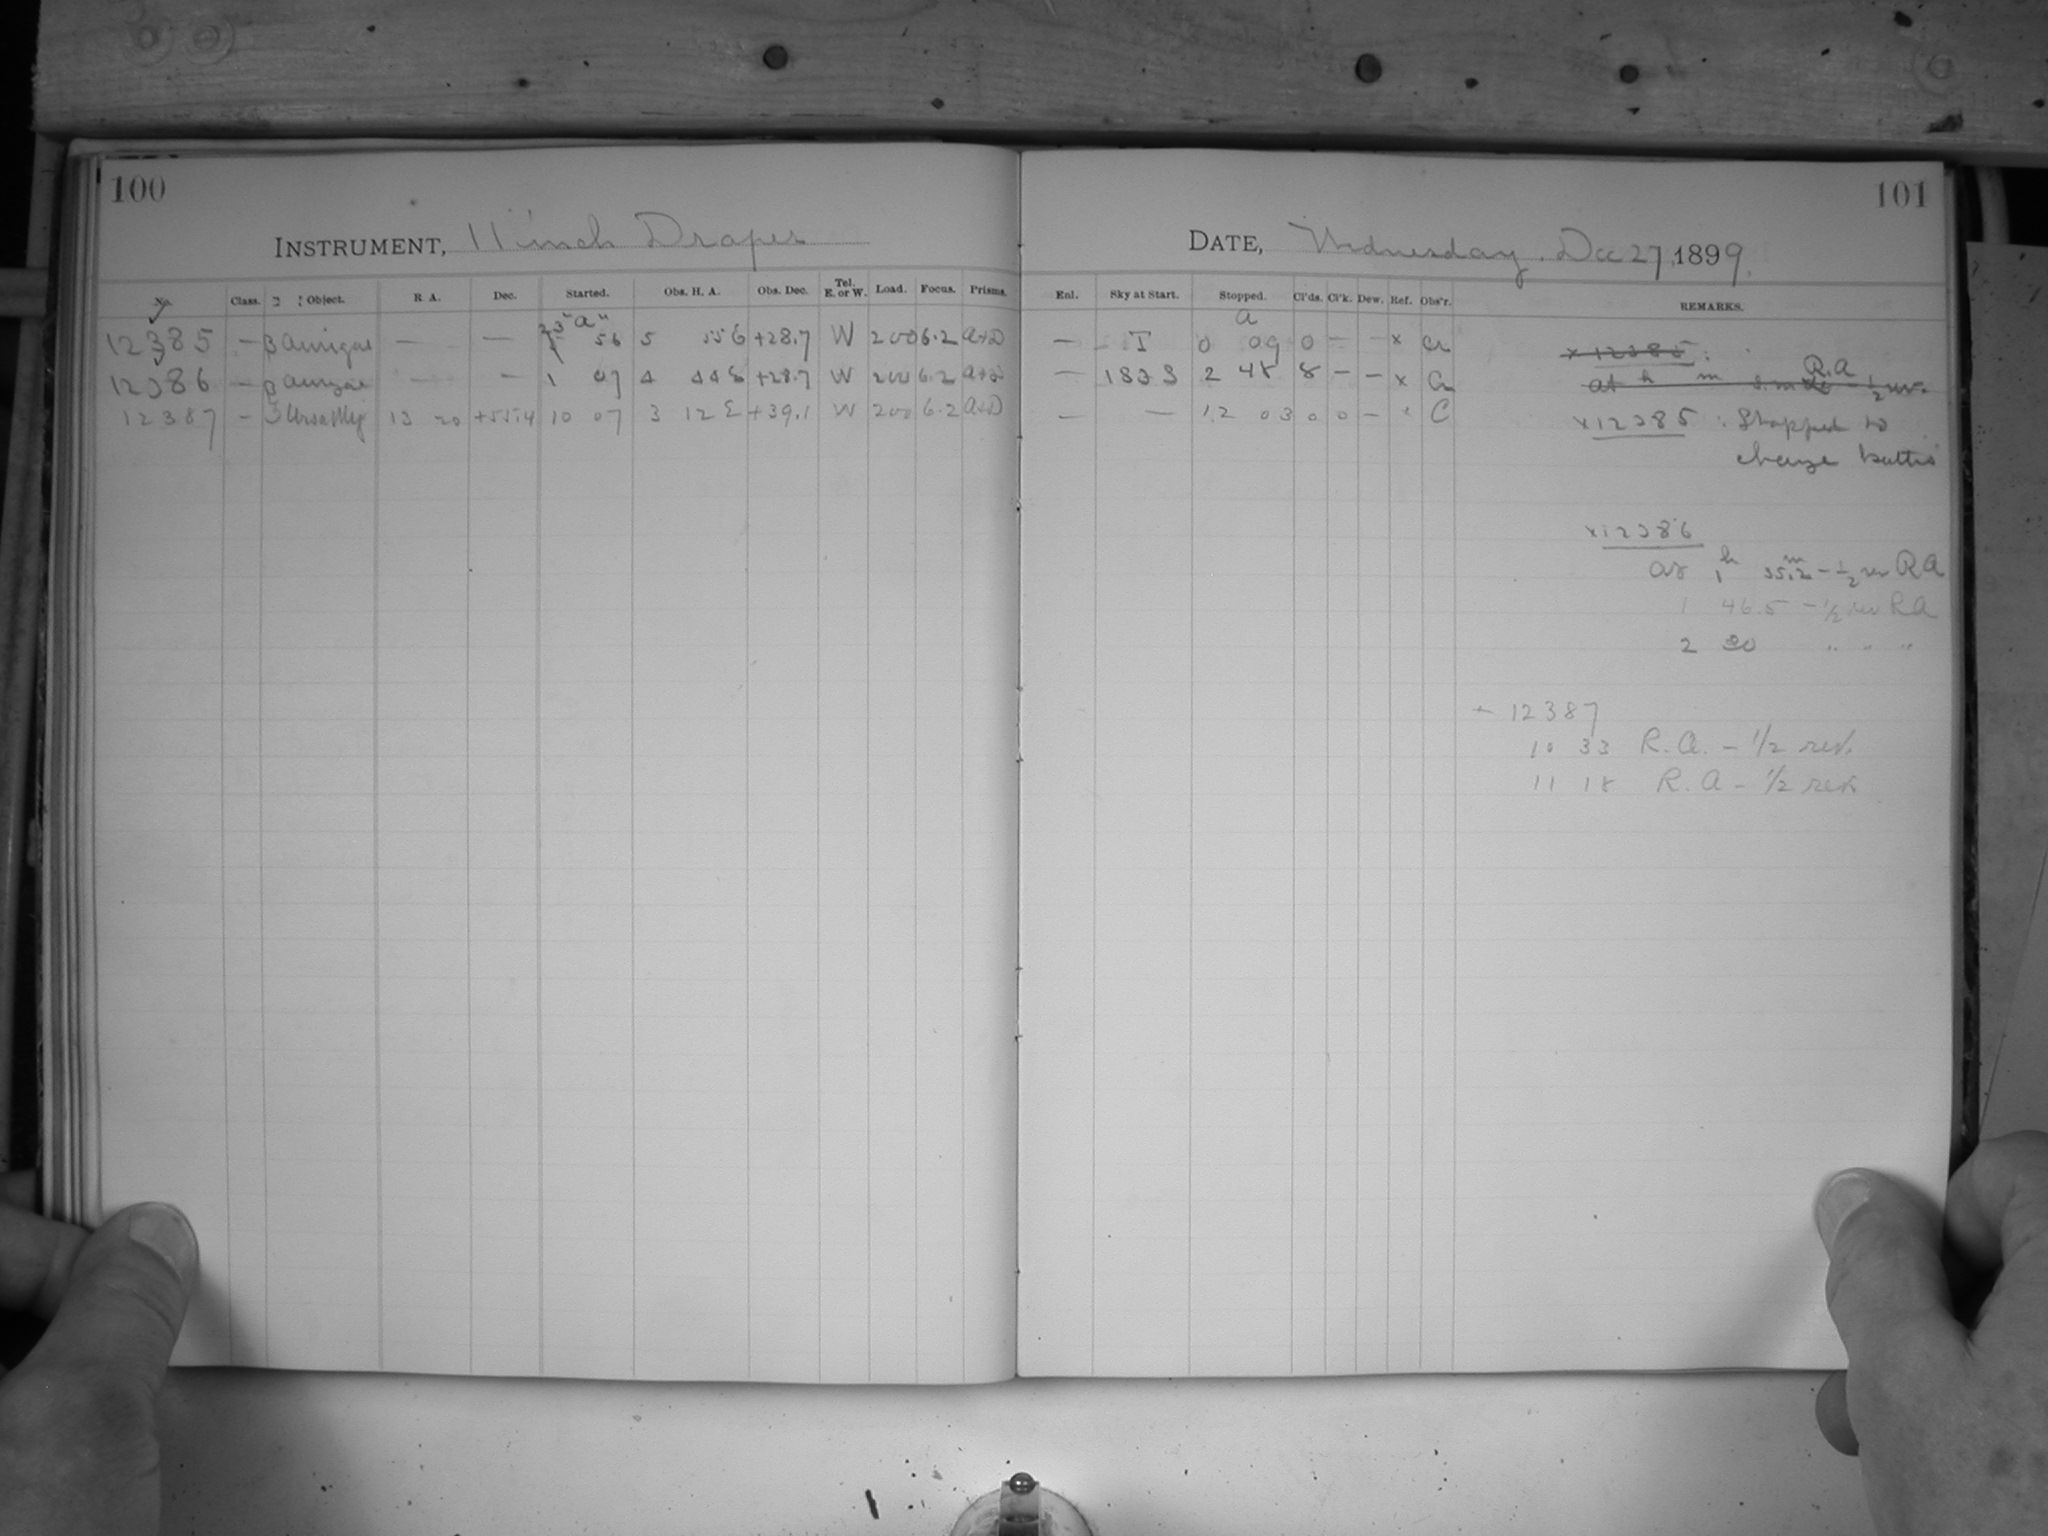 100
INSTRUMENT, 11 inch Draper
No. Class. Object. R A. Dec. Started. Obs. H. A. Obs. Dec. Tel. E. or W. Load. Focus. Prisms.
12385 — β Aurigae — — 23 "a" 56 5 55 E +28.7 W 200 6.2 A+D
12386 — β Aurigae — — 1 07 4 44 E +28.7 W 200 6.2 A+D
12387 — Ursa Maj 13 20 +55.4 10 07 3 12 E +39.1 W 200 6.2 A+D
101
DATE, Wednesday. Dec 27, 1899.
Enl. Sky at Start. Stopped. Cl'ds. Cl'k. Dew. Ref. Obs'r. REMARKS.
a
— I 0 09 0 — — x
— 1823 2 48 8 — — x
— — 12 03 0 0 — C
x 12385:
at h m R.A — ½ rev.
x 12385: Stopped to
change
x 12386
at 1h 35.2m — ½ rev RA
1 46.5 — ½ rev RA
2 20 " " "
12387
10 33 R.A. — 1/2 rev.
11 18 R.A — 1/2 rev.